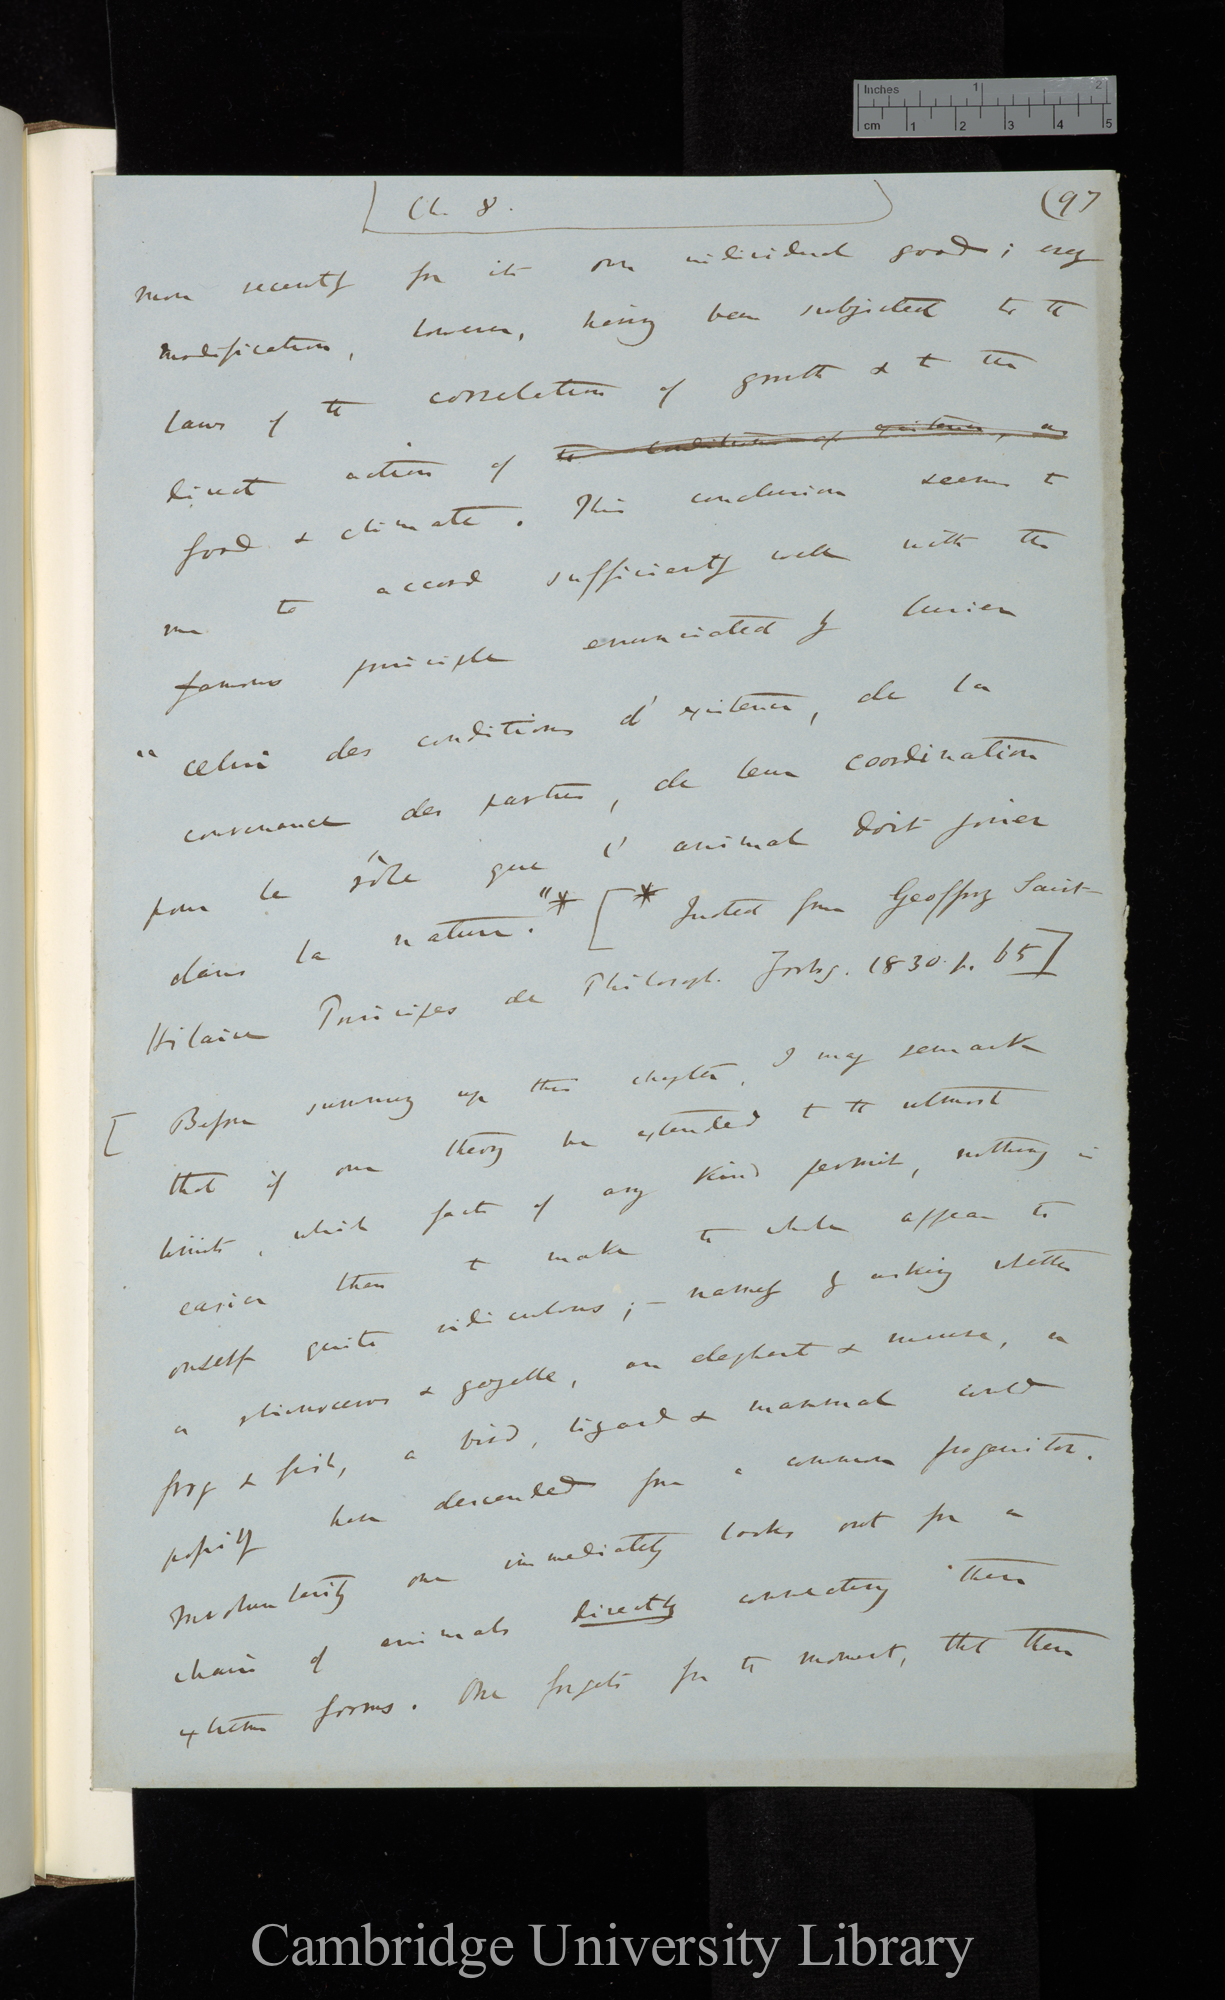 Inches 1 2
cm 1 2 3 4 5
Ch. 8.
(97
more recently for its own individual good; every
modification, however, having been subjected to the
laws of the correlation of growth & to the
direct action of the conditions of existence, as
food & climate. This conclusion seems to
me to accord sufficiently well with the
famous principle enunciated by Cuvier
"celui des conditions d'existence, de la
convenance des parties, de leur coordination
pour le rôle que l'animal doit jouer
dans la nature."* [* Quoted from Geoffroy Saint-
Hilaire Principes de Philosoph. Zoolog. 1830. p. 65]
[Before summing up this chapter, I may remark
that if our theory be extended to the utmost
limits, which facts of any kind permit, nothing is
easier than to make the whole appear to
oneself quite ridiculous;— namely by asking whether
a rhinoceros & gazelle, an elephant & mouse, a
frog & fish, a bird, lizard & mammal could
possibly have descended from a common progenitor.
Involuntarily one immediately looks out for a
chain of animals directly connecting these
extreme forms. One forgets for the moment, that these
Cambridge University Library